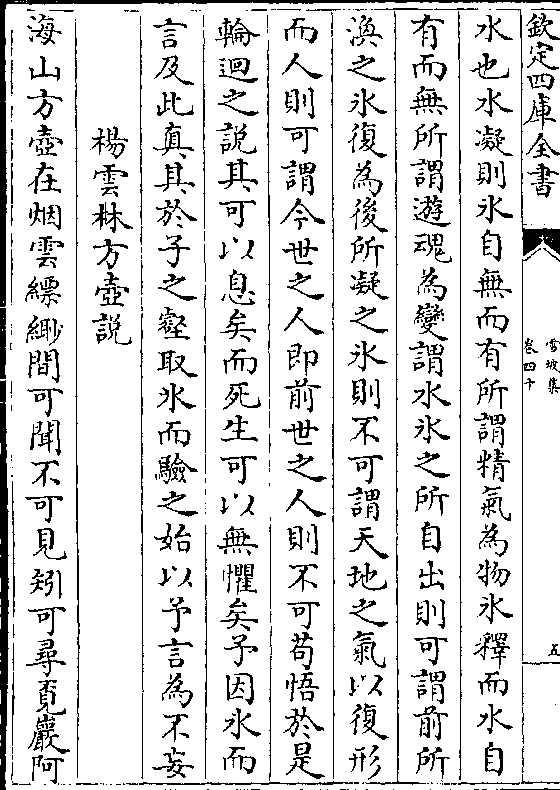 欽定四庫全書
雪坡集
卷四十
五
水也水凝則氷自無而有所謂精氣為物氷釋而水自
有而無所謂遊魂為變謂水氷之所自出則可謂前所
渙之氷復為後所凝之氷則不可謂天地之氣以復形
而人則可謂今世之人即前世之人則不可苟悟於是
輪迴之說其可以息矣而死生可以無懼矣予因氷而
言及此真其於子之壑取氷而驗之始以予言為不妄
楊雲林方壺說
海山方壺在烟雲縹緲間可聞不可見矧可尋覔巖阿